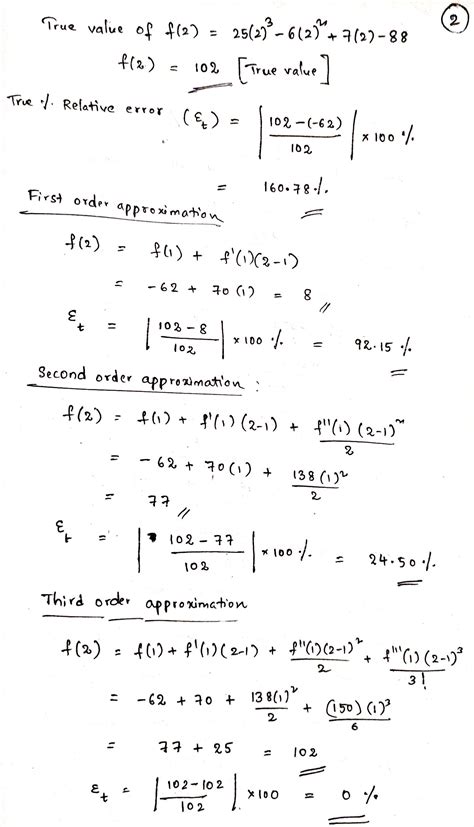 2
True value of f(2) = 25(2)³ - 6(2)² + 7(2) - 88
f(2) = 102 [True value]
True %. Relative error (εₜ) = | 102-(-62) / 102 | × 100 %.
= 160.78 %.
First order approximation
f(2) = f(1) + f'(1)(2-1)
= -62 + 70(1) = 8
εₜ = | 102-8 / 102 | × 100 %. = 92.15 %.
Second order approximation :
f(2) = f(1) + f'(1)(2-1) + f''(1)(2-1)² / 2
= -62 + 70(1) + 138(1)² / 2
= 77
εₜ = | 102-77 / 102 | × 100 %. = 24.50 %.
Third order approximation
f(2) = f(1) + f'(1)(2-1) + f''(1)(2-1)² / 2 + f'''(1)(2-1)³ / 3!
= -62 + 70 + 138(1)² / 2 + (150)(1)³ / 6
= 77 + 25 = 102
εₜ = | 102-102 / 102 | × 100 = 0 %.